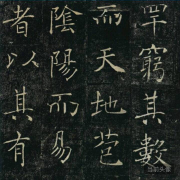 罕窮其數
而天地苞
陰陽而易
者以其有